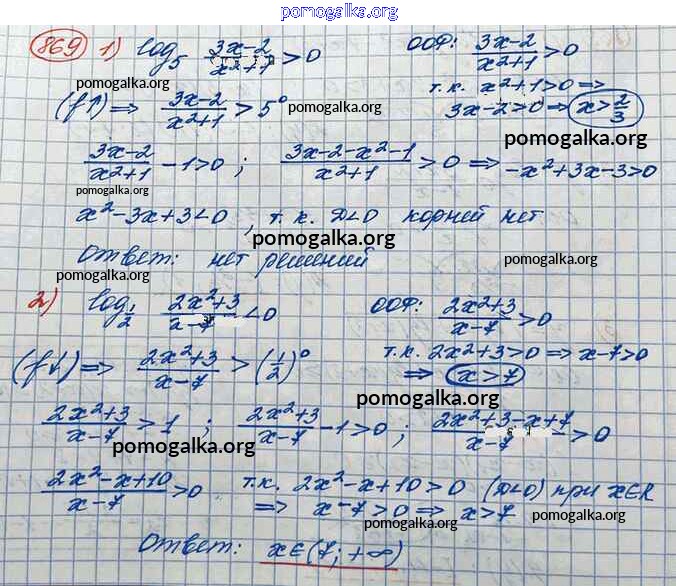 pomogalka.org
869 1) log₅ (3x-2)/(x²+1) > 0    ООФ: (3x-2)/(x²+1) > 0
pomogalka.org    т.к. x²+1>0 =>
(f↑) => (3x-2)/(x²+1) > 5⁰    pomogalka.org    3x-2>0 => x>2/3
pomogalka.org
(3x-2)/(x²+1) - 1>0 ; (3x-2-x²-1)/(x²+1) > 0 => -x²+3x-3>0
pomogalka.org
x²-3x+3<0, т.к. D<0 корней нет
pomogalka.org
Ответ: нет решений    pomogalka.org
pomogalka.org
2) log_{1/2} (2x²+3)/(x-7) < 0    ООФ: (2x²+3)/(x-7) > 0
(f↓) => (2x²+3)/(x-7) > (1/2)⁰    т.к. 2x²+3>0 => x-7>0
=> x>7
pomogalka.org
(2x²+3)/(x-7) > 1 ; (2x²+3)/(x-7) - 1>0 ; (2x²+3-x+7)/(x-7) > 0
pomogalka.org
(2x²-x+10)/(x-7) > 0    т.к. 2x²-x+10>0 (D<0) при x∈R
=> x-7>0 => x>7    pomogalka.org
pomogalka.org
Ответ: x∈(7; +∞)